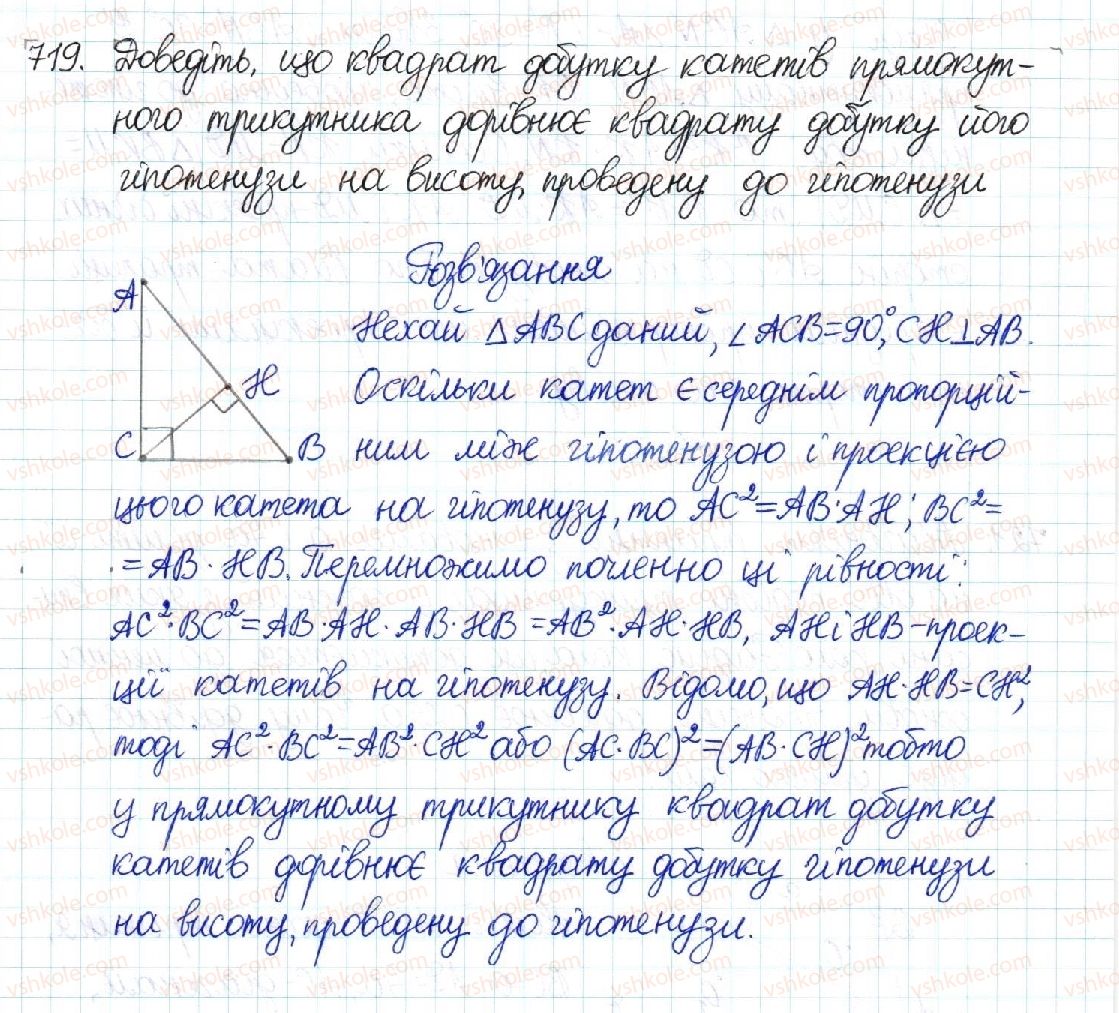 719. Доведіть, що квадрат добутку катетів прямокут-
ного трикутника дорівнює квадрату добутку його
гіпотенузи на висоту, проведену до гіпотенузи
Розв'язання
A
H
C
B
Нехай △ABC даний, ∠ACB=90°, CH⊥AB.
Оскільки катет є середнім пропорцій-
ним між гіпотенузою і проекцією
цього катета на гіпотенузу, то AC²=AB·AH; BC²=
=AB·HB. Перемножимо почленно ці рівності:
AC²·BC²=AB·AH·AB·HB=AB²·AH·HB, AH і HB-проек-
ції катетів на гіпотенузу. Відомо, що AH·HB=CH²,
тоді AC²·BC²=AB²·CH² або (AC·BC)²=(AB·CH)² тобто
у прямокутному трикутнику квадрат добутку
катетів дорівнює квадрату добутку гіпотенузи
на висоту, проведену до гіпотенузи.
vshkole.com